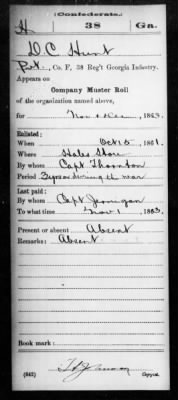 (Confederate.)
H 38 Ga.
D C Hunt
Pvt., Co. F, 38 Reg't Georgia Infantry.
Appears on
Company Muster Roll
of the organization named above,
for Nov & Dec, 1863.
Enlisted:
When Oct 15, 1861.
Where Hales Store
By whom Capt Thornton
Period 3 yrs or during the war
Last paid:
By whom Capt Jernigan
To what time Nov 1, 1863.
Present or absent Absent
Remarks: Absent
Book mark:
(642) Copyist.